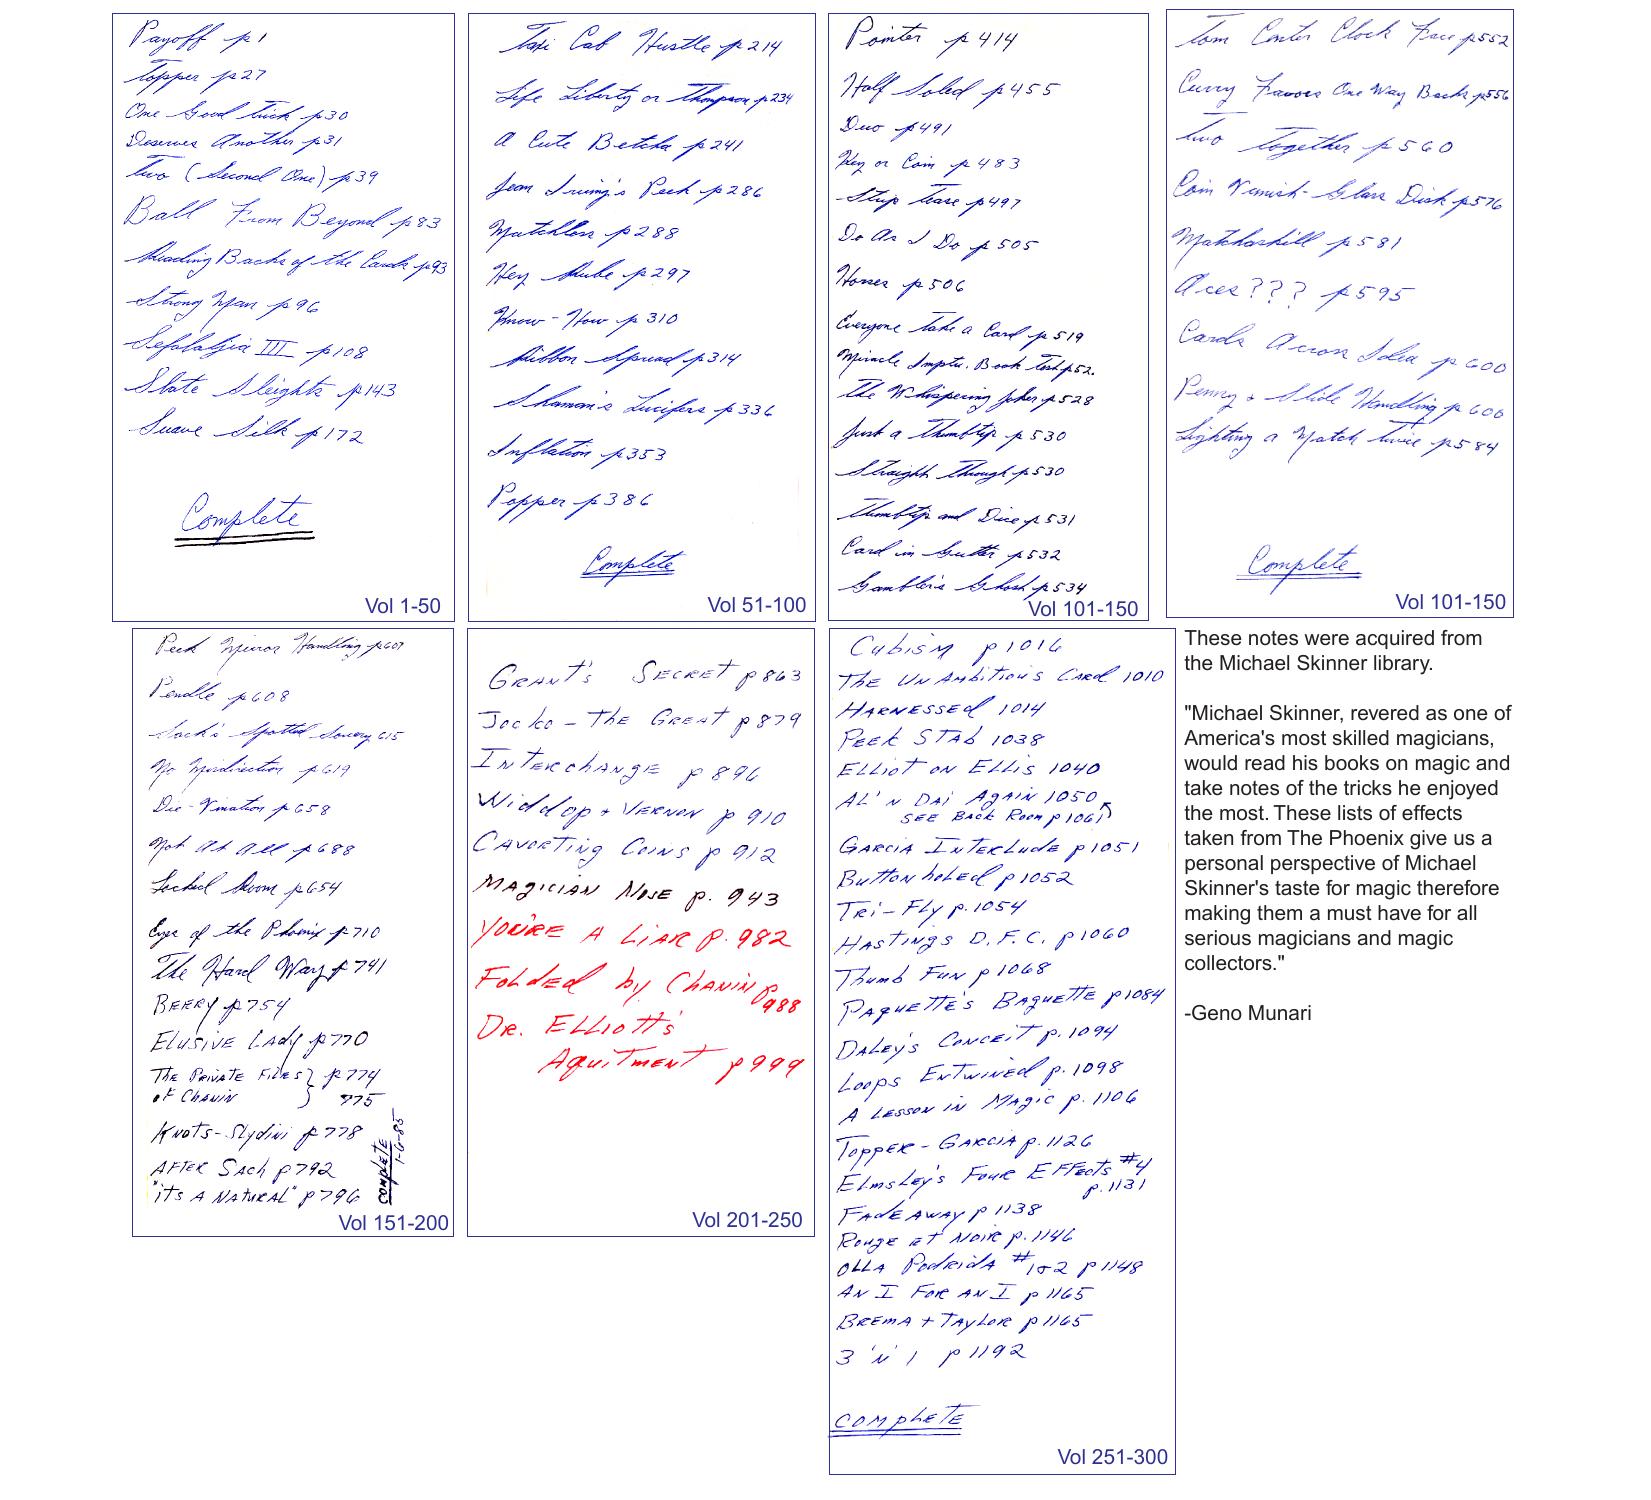 Payoff p1
Topper p27
One Good Trick p30
Deserves Another p31
Two (Second One) p39
Ball From Beyond p83
Reading Backs of the Cards p93
Strong Man p96
Sefalaljia III p108
Slate Sleights p143
Suave Silk p172
Complete
Vol 1-50
Taxi Cab Hustle p214
Life Liberty or Thompson p234
A Cute Betcha p241
Jean Irving's Peek p286
Matchless p288
Hey Rube p297
Know-How p310
Ribbon Spread p314
Shaman's Lucifers p336
Inflation p353
Popper p386
Complete
Vol 51-100
Pointer p414
Half Soled p455
Duo p491
Key or Coin p483
Strip Tease p497
Do As I Do p505
Horses p506
Everyone Take a Card p519
Miracle Imptu. Book Test p52.
The Whispering Joker p528
Just a Thumbtip p530
Straight Through p530
Thumbtip and Dice p531
Card in Gutter p532
Gambler's Ghost p534
Vol 101-150
Tom Center Clock Face p552
Curry Favors One Way Backs p556
Two Together p560
Coin Vanish-Glass Disk p576
Matchaskill p581
Aces??? p595
Cards Across Idea p600
Penny + Slide Handling p606
Lighting a Match Twice p584
Complete
Vol 101-150
Peek Mirror Handling p607
Pendle p608
Sach's Spotted Sorcery 615
No Misdirection p619
Die-Vination p658
Not At All p688
Locked Room p654
Eyes of the Phoenix p710
The Hard Way p741
BEERY p754
ELUSIVE LADY p770
THE PRIVATE FILES} p774
OF CHANIN } 775
KNOTS-SLYDINI p778
AFTER SACH p792
"ITS A NATURAL" p796
COMPLETE
1-6-85
Vol 151-200
GRANT'S SECRET p863
JOCKO - THE GREAT p879
INTERCHANGE p896
WIDDOP + VERNON p910
CAVORTING COINS p912
MAGICIAN NOSE p. 943
YOU'RE A LIAR p. 982
FOLDED by CHANIN p988
DR. ELLIOTT'S
AQUITMENT p999
Vol 201-250
CUBISM p1016
THE UNAMBITIOUS CARD 1010
HARNESSED 1014
PEEK STAB 1038
ELLIOT ON ELLIS 1040
AL'N DAI AGAIN 1050
SEE BACK ROOM p1061
GARCIA INTERLUDE p1051
BUTTONHOLED p1052
TRI-FLY p.1054
HASTINGS D.F.C. p1060
THUMB FUN p1068
PAQUETTE'S BAGUETTE p1084
DALEY'S CONCEIT p.1094
LOOPS ENTWINED p.1098
A LESSON IN MAGIC p.1106
TOPPER-GARCIA p.1126
ELMSLEY'S FOUR EFFECTS #4
p.1131
FADEAWAY p1138
ROUGE ET NOIR p.1146
OLLA PODRIDA #1+2 p1148
AN I FOR AN I p1165
BREMA + TAYLOR p1165
3 'N' 1 p1192
COMPLETE
Vol 251-300
These notes were acquired from
the Michael Skinner library.
"Michael Skinner, revered as one of
America's most skilled magicians,
would read his books on magic and
take notes of the tricks he enjoyed
the most. These lists of effects
taken from The Phoenix give us a
personal perspective of Michael
Skinner's taste for magic therefore
making them a must have for all
serious magicians and magic
collectors."
-Geno Munari